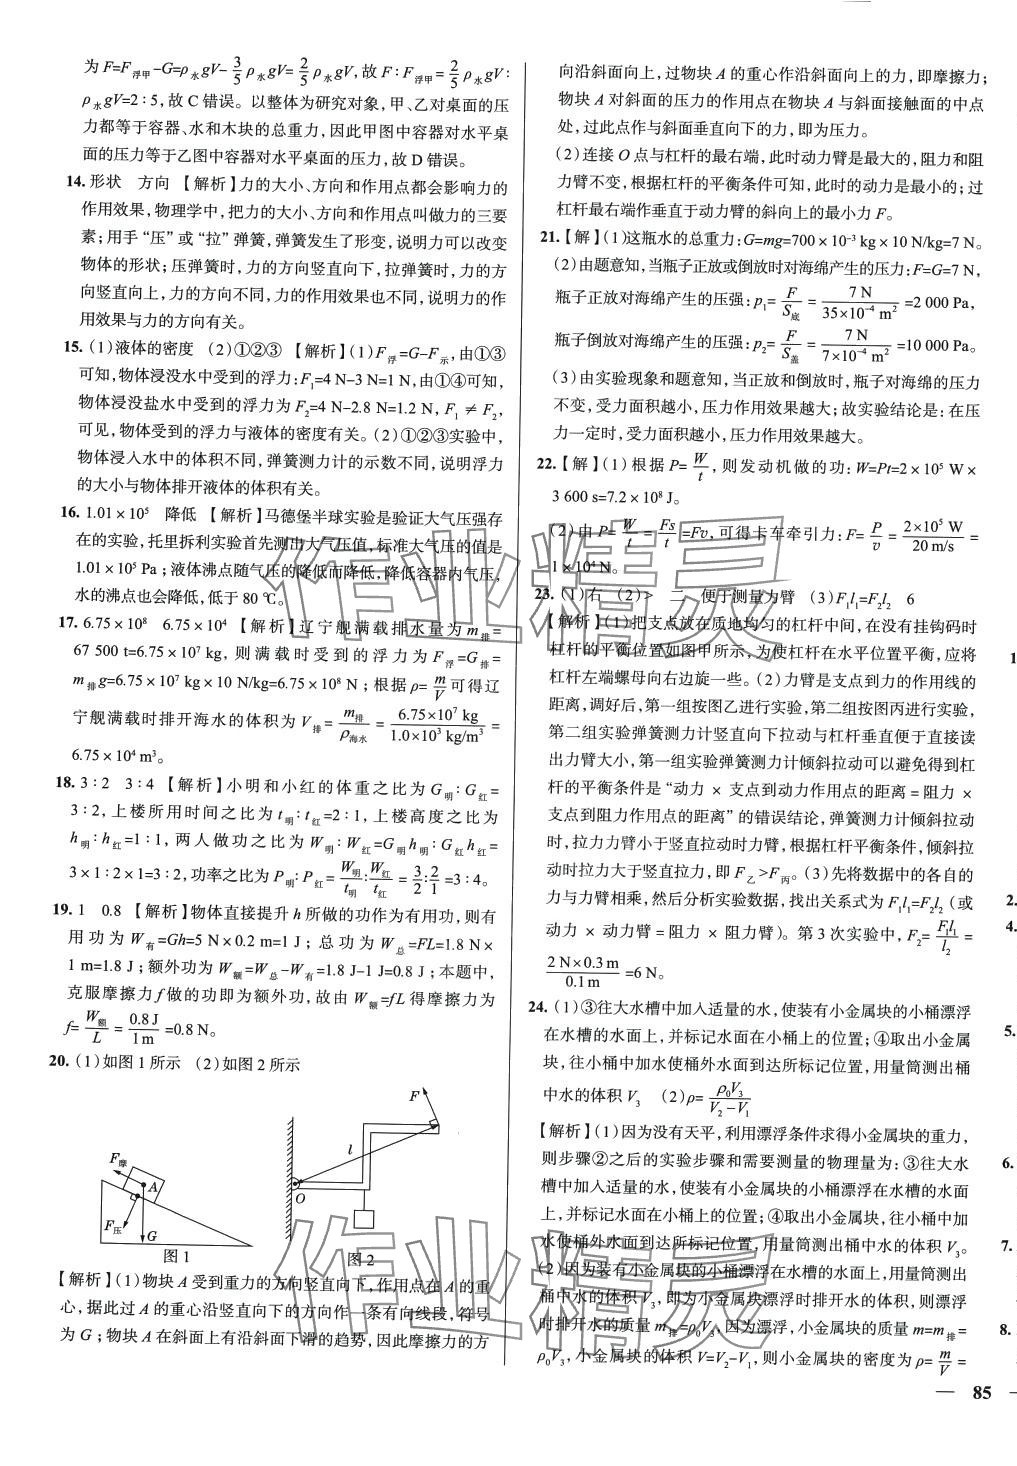 为 F=F浮甲-G=ρ水gV-3/5ρ水gV=2/5ρ水gV,故 F∶F浮甲=2/5ρ水gV∶
ρ水gV=2∶5,故 C 错误。以整体为研究对象,甲、乙对桌面的压
力都等于容器、水和木块的总重力,因此甲图中容器对水平桌
面的压力等于乙图中容器对水平桌面的压力,故 D 错误。
14. 形状 方向 【解析】力的大小、方向和作用点都会影响力的
作用效果,物理学中,把力的大小、方向和作用点叫做力的三要
素;用手“压”或“拉”弹簧,弹簧发生了形变,说明力可以改变
物体的形状;压弹簧时,力的方向竖直向下,拉弹簧时,力的方
向竖直向上,力的方向不同,力的作用效果也不同,说明力的作
用效果与力的方向有关。
15. (1)液体的密度 (2)①②③ 【解析】(1)F浮=G-F示,由①③
可知,物体浸没水中受到的浮力:F₁=4 N-3 N=1 N,由①④可知,
物体浸没盐水中受到的浮力为 F₂=4 N-2.8 N=1.2 N,F₁≠F₂,
可见,物体受到的浮力与液体的密度有关。(2)①②③实验中,
物体浸入水中的体积不同,弹簧测力计的示数不同,说明浮力
的大小与物体排开液体的体积有关。
16. 1.01×10⁵ 降低 【解析】马德堡半球实验是验证大气压强存
在的实验,托里拆利实验首先测出大气压值,标准大气压的值是
1.01×10⁵ Pa;液体沸点随气压的降低而降低,降低容器内气压,
水的沸点也会降低,低于 80 ℃。
17. 6.75×10⁸ 6.75×10⁴ 【解析】辽宁舰满载排水量为 m排=
67 500 t=6.75×10⁷ kg,则满载时受到的浮力为 F浮=G排=
m排g=6.75×10⁷ kg×10 N/kg=6.75×10⁸ N;根据 ρ=m/V可得辽
宁舰满载时排开海水的体积为 V排=m排/ρ海水=6.75×10⁷ kg/1.0×10³ kg/m³=
6.75×10⁴ m³。
18. 3∶2 3∶4 【解析】小明和小红的体重之比为 G明∶G红=
3∶2,上楼所用时间之比为 t明∶t红=2∶1,上楼高度之比为
h明∶h红=1∶1,两人做功之比为 W明∶W红=G明h明∶G红h红=
3×1∶2×1=3∶2,功率之比为 P明∶P红=W明/t明∶W红/t红=3/2∶2/1=3∶4。
19. 1 0.8 【解析】物体直接提升 h 所做的功作为有用功,则有
用功为 W有=Gh=5 N×0.2 m=1 J;总功为 W总=FL=1.8 N×
1 m=1.8 J;额外功为 W额=W总-W有=1.8 J-1 J=0.8 J;本题中,
克服摩擦力 f 做的功即为额外功,故由 W额=fL 得摩擦力为
f=W额/L=0.8 J/1 m=0.8 N。
20. (1)如图 1 所示 (2)如图 2 所示
F摩
A
F压
G
图 1
F
l
O
图 2
【解析】(1)物块 A 受到重力的方向竖直向下,作用点在 A 的重
心,据此过 A 的重心沿竖直向下的方向作一条有向线段,符号
为 G;物块 A 在斜面上有沿斜面下滑的趋势,因此摩擦力的方
向沿斜面向上,过物块 A 的重心作沿斜面向上的力,即摩擦力;
物块 A 对斜面的压力的作用点在物块 A 与斜面接触面的中点
处,过此点作与斜面垂直向下的力,即为压力。
(2)连接 O 点与杠杆的最右端,此时动力臂是最大的,阻力和阻
力臂不变,根据杠杆的平衡条件可知,此时的动力是最小的;过
杠杆最右端作垂直于动力臂的斜向上的最小力 F。
21.【解】(1)这瓶水的总重力:G=mg=700×10⁻³ kg×10 N/kg=7 N。
(2)由题意知,当瓶子正放或倒放时对海绵产生的压力:F=G=7 N,
瓶子正放对海绵产生的压强:p₁=F/S底=7 N/35×10⁻⁴ m²=2 000 Pa,
瓶子倒放对海绵产生的压强:p₂=F/S盖=7 N/7×10⁻⁴ m²=10 000 Pa。
(3)由实验现象和题意知,当正放和倒放时,瓶子对海绵的压力
不变,受力面积越小,压力作用效果越大;故实验结论是:在压
力一定时,受力面积越小,压力作用效果越大。
22.【解】(1)根据 P=W/t,则发动机做的功:W=Pt=2×10⁵ W×
3 600 s=7.2×10⁸ J。
(2)由 P=W/t=Fs/t=Fv,可得卡车牵引力:F=P/v=2×10⁵ W/20 m/s=
1×10⁴ N。
23. (1)右 (2)> 二 便于测量力臂 (3)F₁l₁=F₂l₂ 6
【解析】(1)把支点放在质地均匀的杠杆中间,在没有挂钩码时
杠杆的平衡位置如图甲所示,为使杠杆在水平位置平衡,应将
杠杆左端螺母向右边旋一些。(2)力臂是支点到力的作用线的
距离,调好后,第一组按图乙进行实验,第二组按图丙进行实验,
第二组实验弹簧测力计竖直向下拉动与杠杆垂直便于直接读
出力臂大小,第一组实验弹簧测力计倾斜拉动可以避免得到杠
杆的平衡条件是“动力×支点到动力作用点的距离=阻力×
支点到阻力作用点的距离”的错误结论,弹簧测力计倾斜拉动
时,拉力力臂小于竖直拉动时力臂,根据杠杆平衡条件,倾斜拉
动时拉力大于竖直拉力,即 F乙>F丙。(3)先将数据中的各自的
力与力臂相乘,然后分析实验数据,找出关系式为 F₁l₁=F₂l₂(或
动力×动力臂=阻力×阻力臂)。第 3 次实验中,F₂=F₁l₁/l₂=
2 N×0.3 m/0.1 m=6 N。
24. (1)③往大水槽中加入适量的水,使装有小金属块的小桶漂浮
在水槽的水面上,并标记水面在小桶上的位置;④取出小金属
块,往小桶中加水使桶外水面到达所标记位置,用量筒测出桶
中水的体积 V₃ (2)ρ=ρ₀V₃/V₂-V₁
【解析】(1)因为没有天平,利用漂浮条件求得小金属块的重力,
则步骤②之后的实验步骤和需要测量的物理量为:③往大水
槽中加入适量的水,使装有小金属块的小桶漂浮在水槽的水面
上,并标记水面在小桶上的位置;④取出小金属块,往小桶中加
水使桶外水面到达所标记位置,用量筒测出桶中水的体积 V₃。
(2)因为装有小金属块的小桶漂浮在水槽的水面上,用量筒测出
桶中水的体积 V₃,即为小金属块漂浮时排开水的体积,则漂浮
时排开水的质量 m排=ρ₀V₃,因为漂浮,小金属块的质量 m=m排=
ρ₀V₃,小金属块的体积 V=V₂-V₁,则小金属块的密度为 ρ=m/V=
85
作业精灵
作业精灵
1
2.
4.
5.
6.
7.
8.